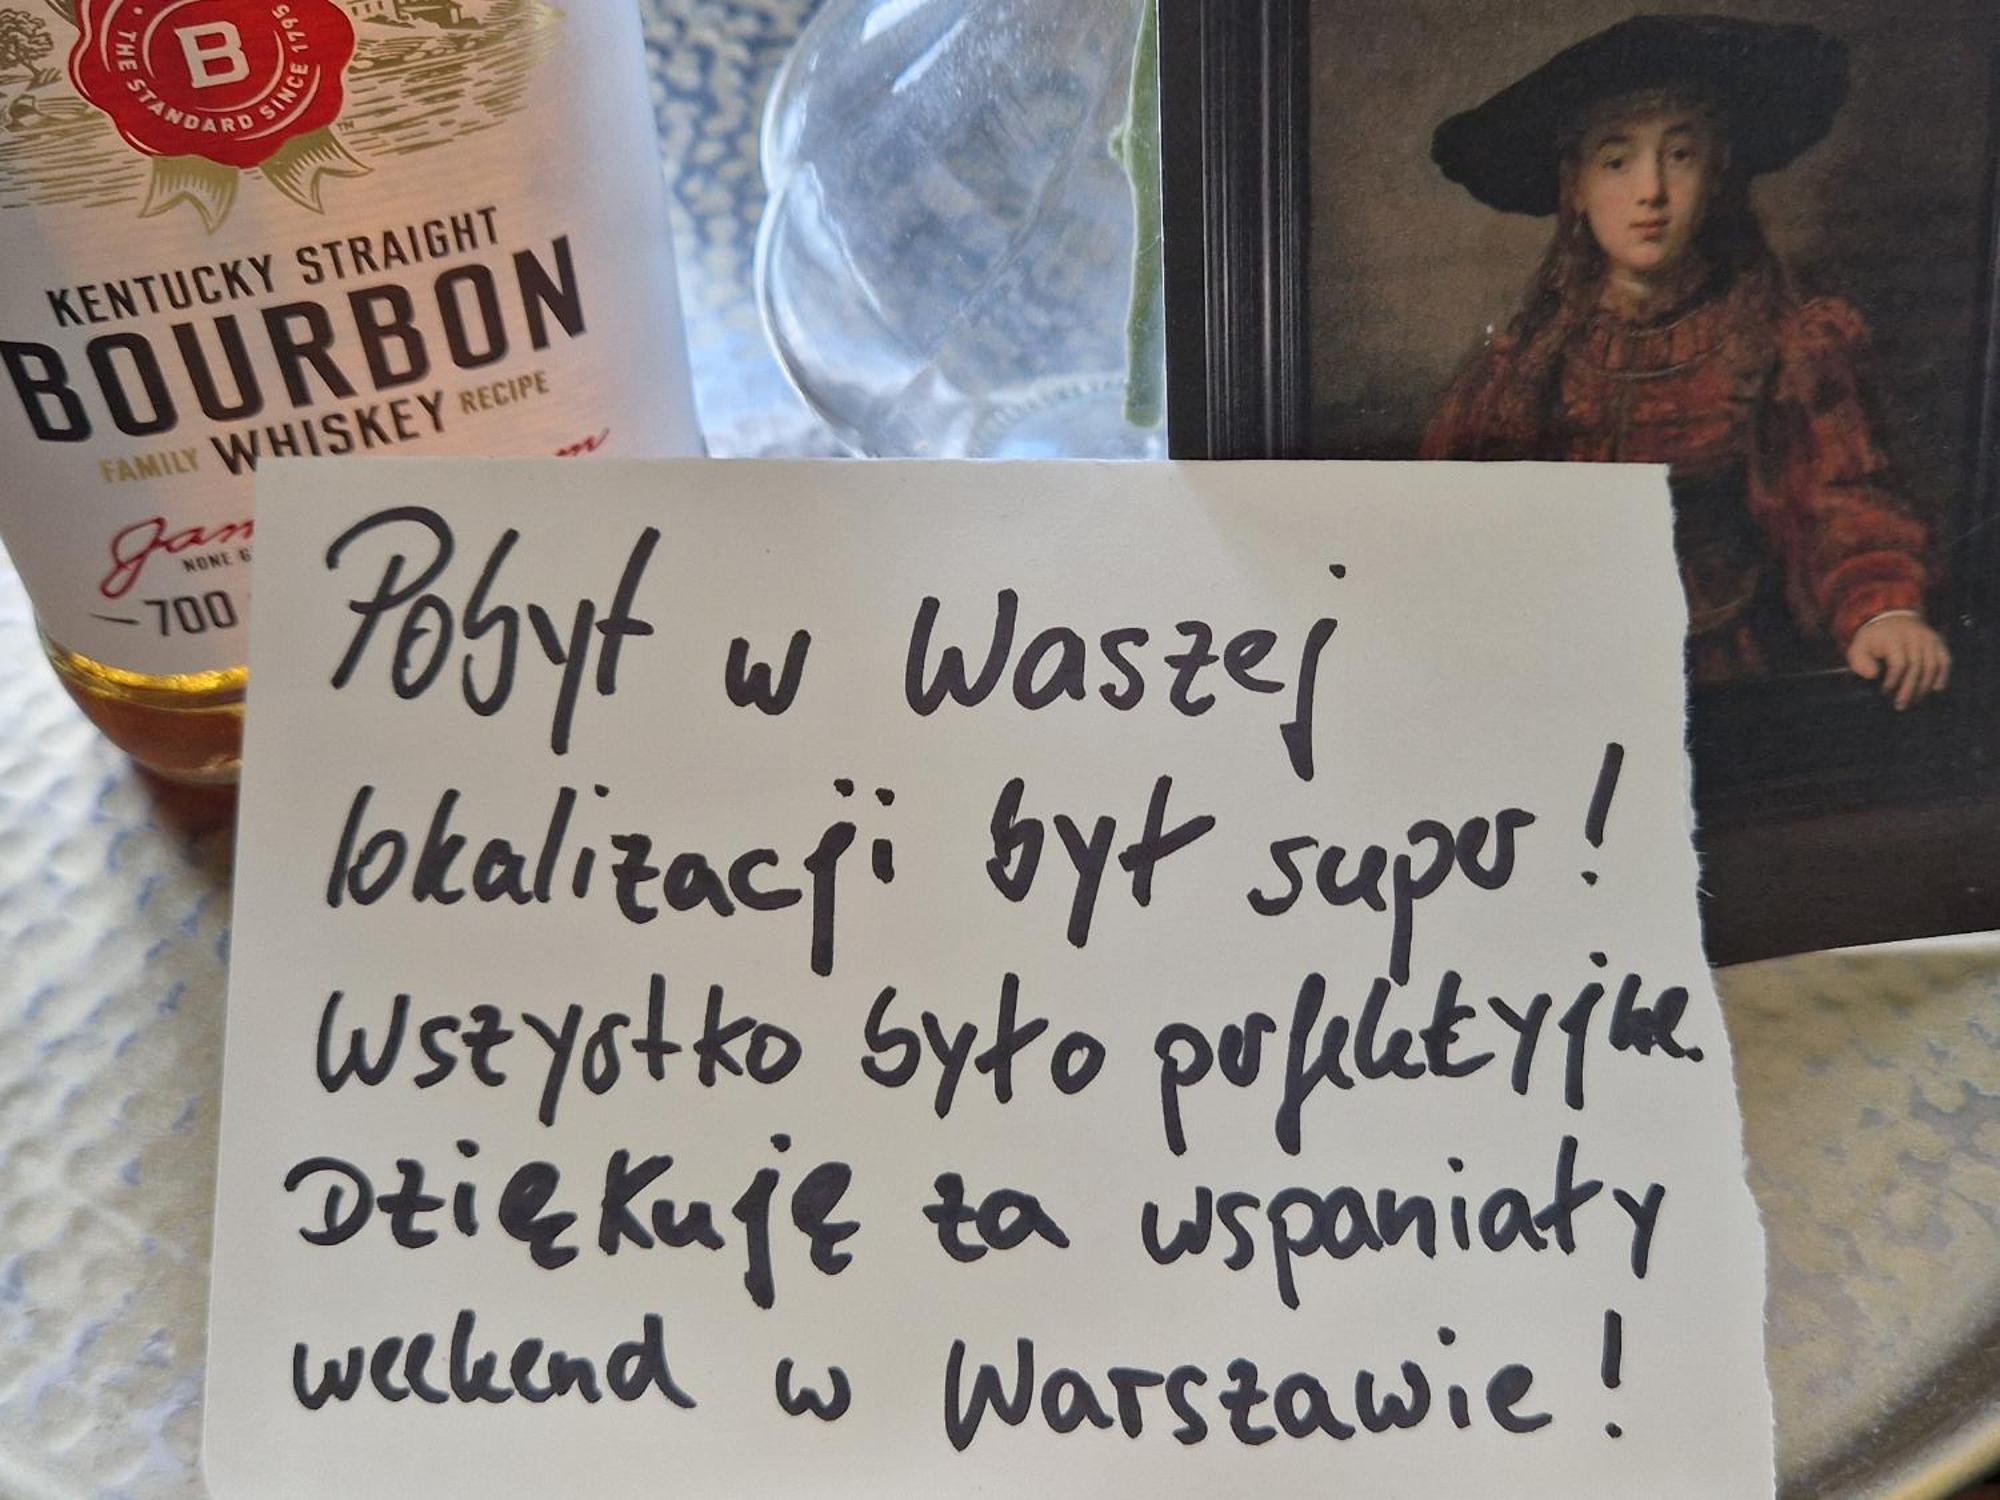 B
THE STANDARD SINCE 1795
TM
KENTUCKY STRAIGHT
BOURBON
FAMILY WHISKEY RECIPE
NONE
700
Pobyt w Waszej
lokalizacji był super!
Wszystko było perfektyjne.
Dziękuję za wspaniały
weekend w Warszawie!